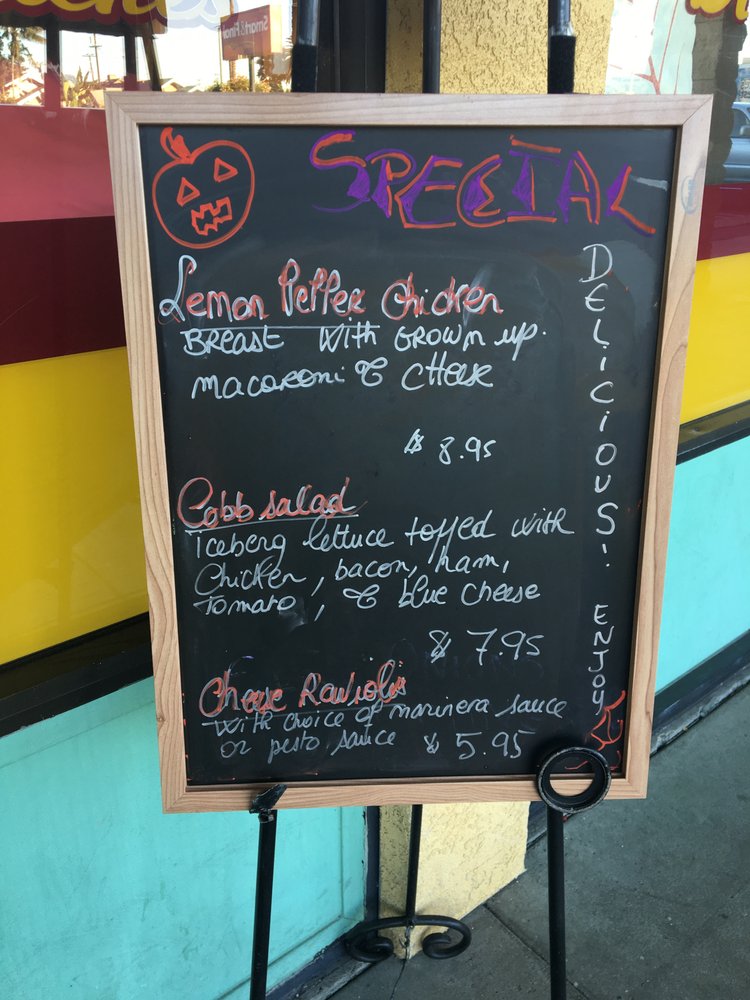 Smart&Final
SPECIAL
Lemon Pepper Chicken
Breast with Grown up.
macaroni & cheese
$ 8.95
Cobb salad
Iceberg lettuce tossed with
Chicken, bacon, ham,
Tomato, & blue cheese
$ 7.95
Cheese Raviolis
with choice of marinera sauce
or pesto sauce $ 5.95
DELICIOUS! ENJOY